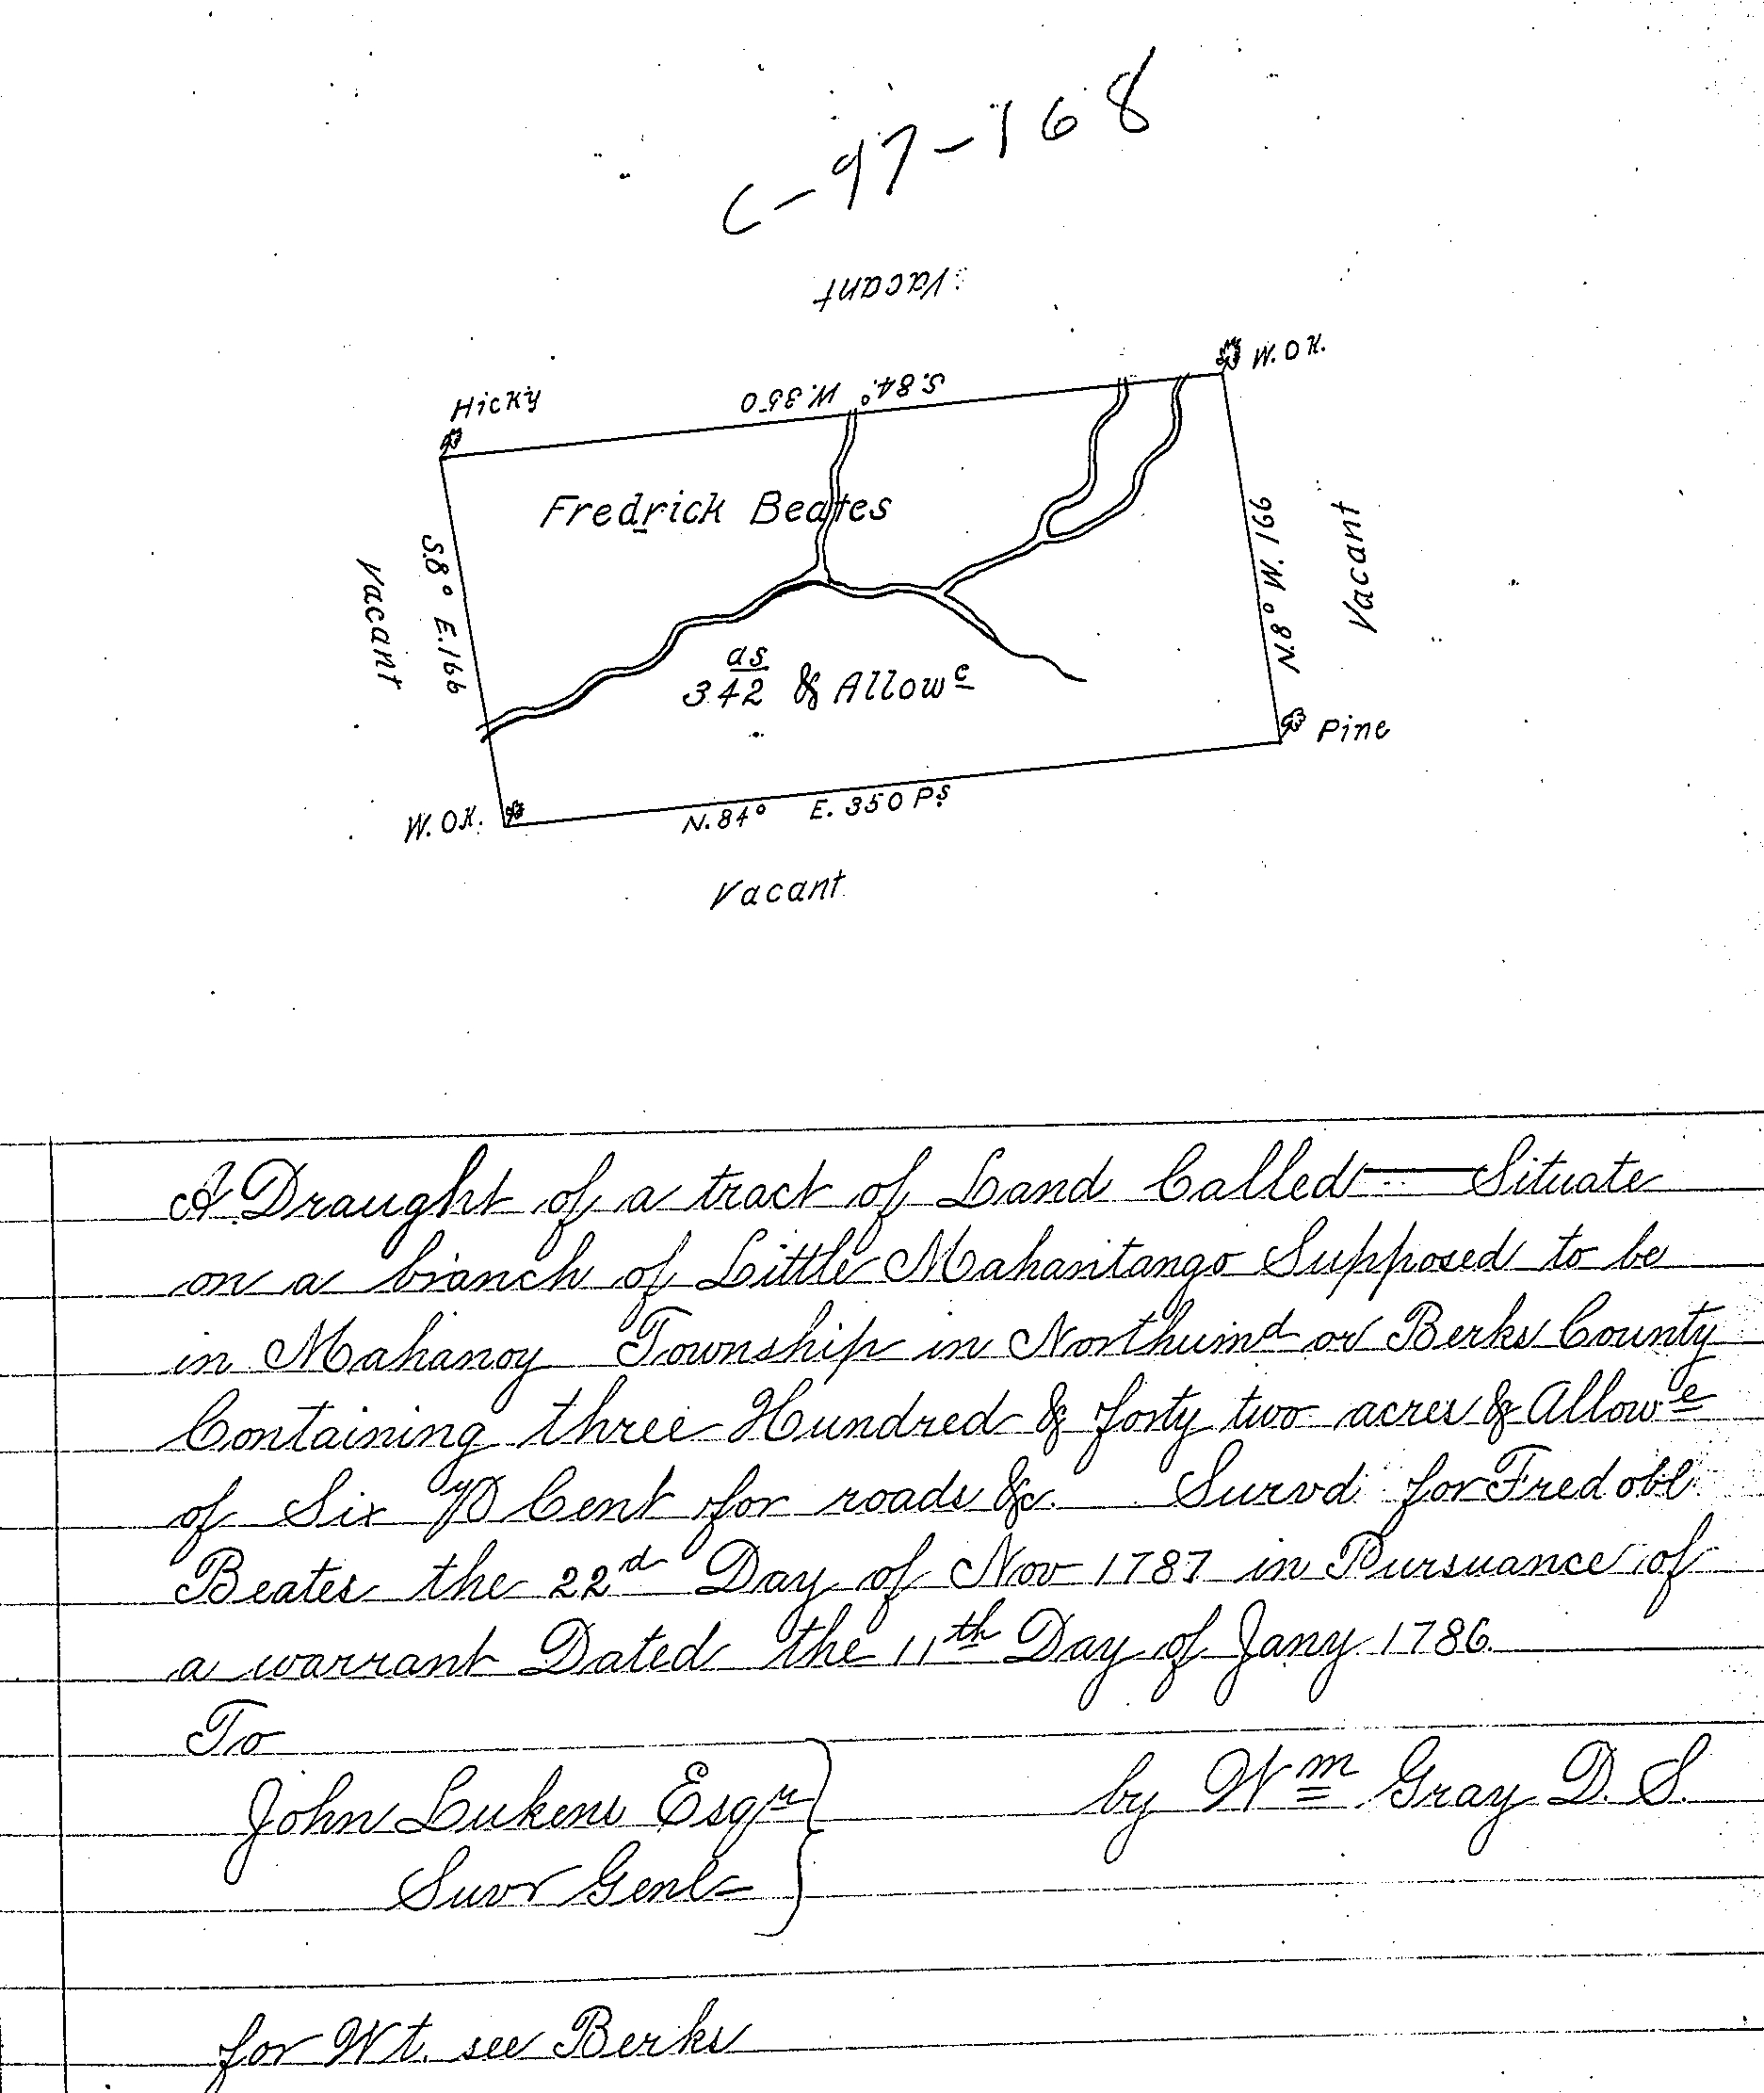 C-97-168
Vacant
W. OK.
Hicky
S. 84° W. 350
Fredrick Beates
S.8° E. 166
Vacant
N.8° W. 166
Vacant
as
342 & Allowe
Pine
W. OK.
N. 84° E. 350 Ps
Vacant
A Draught of a tract of Land Called — Situate
on a branch of Little Mahantango Supposed to be
in Mahanoy Township in Northumd or Berks County
Containing three Hundred & forty two acres & Allowe
of Six P Cent for roads &c. Survd for Fred
Beates the 22d Day of Nov 1787 in Pursuance of
a warrant Dated the 11th Day of Jany 1786.
To
John Lukens Esqr
Suvr Genl
by Wm Gray D. S.
for Wt. see Berks